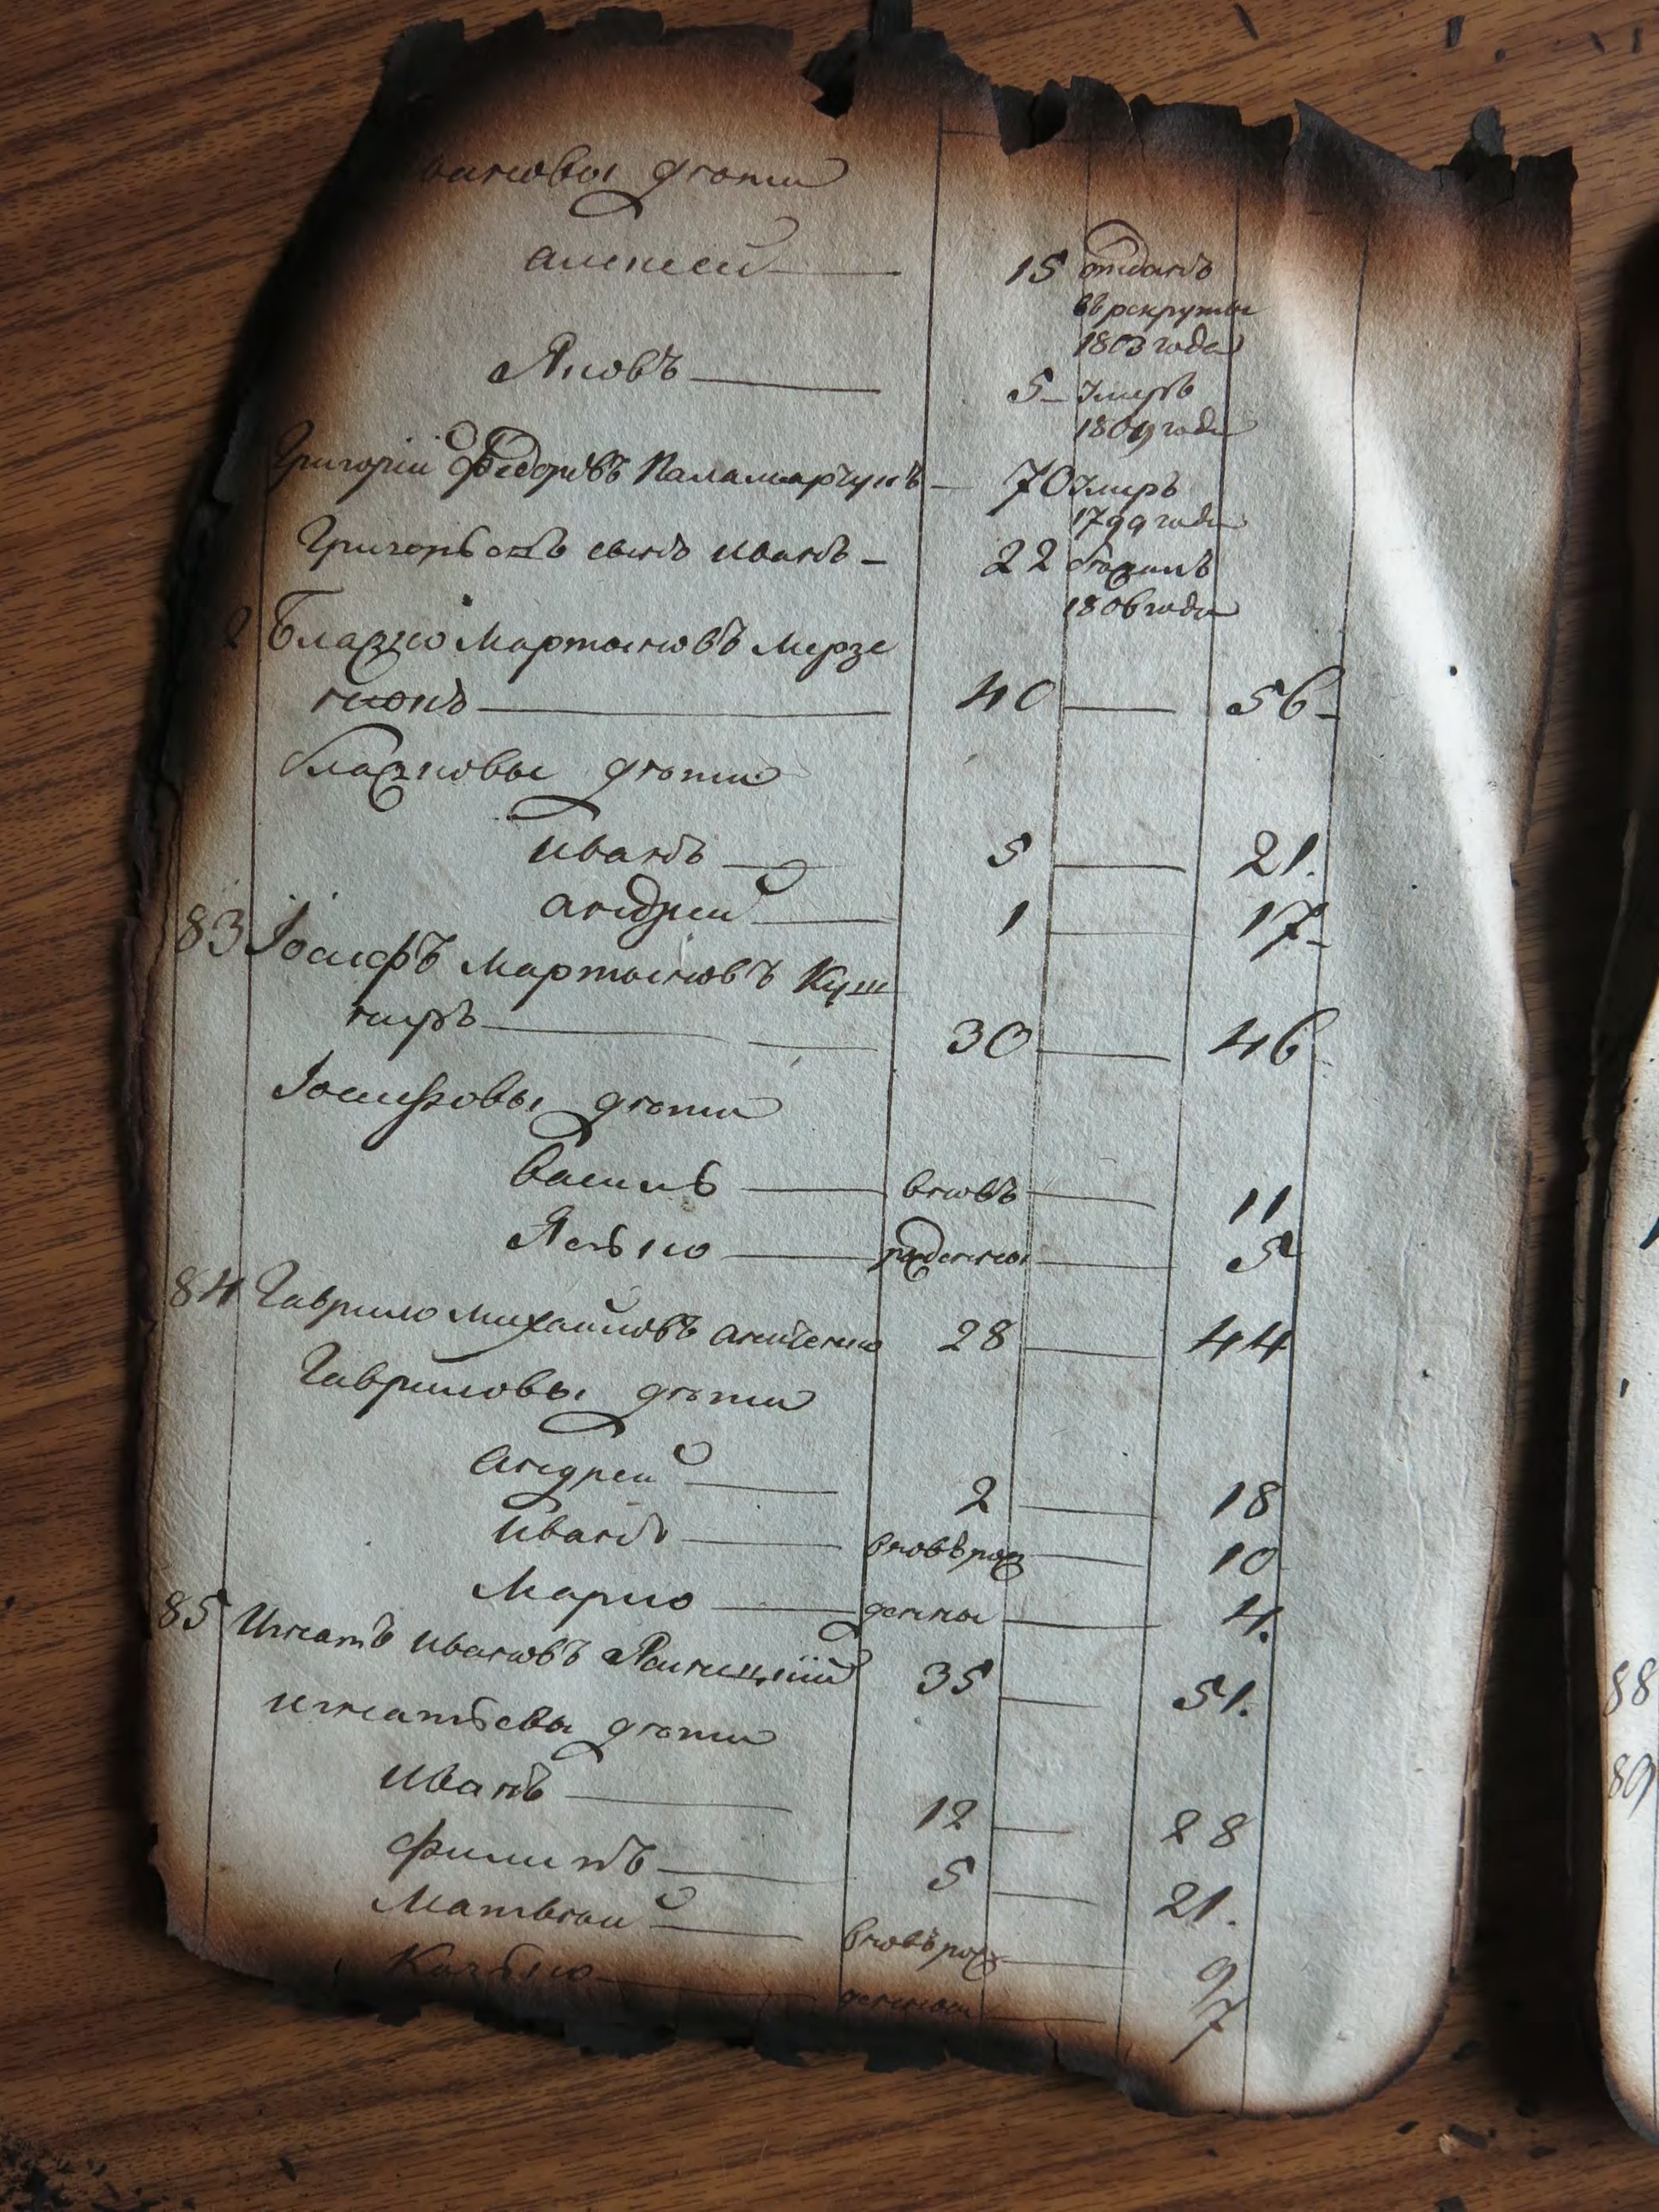 ановы дѣти
Алексей 15 отданъ
въ рекруты
1803 года
Яковъ 5 умеръ
1809 года
Григорій Федоровъ Паламарчукъ 70 умеръ
1799 года
Григорьевъ сынъ Иванъ 22
1806 года
2 Блазко Мартыновъ Мерзе
нюкъ 40 56
Блазковы дѣти
Иванъ 5 21.
Андрей 1 17
83 Іосифъ Мартыновъ Куш
ниръ 30 46
Іосифовы дѣти
Василь вновъ 11
Ясько рожденны 5
84 Гаврило Михайловъ 28 44
Гавриловы дѣти
Андрей 2 18
Иванъ вновь рож 10
Марко денны 4.
85 Игнатъ Ивановъ 35 51.
Игнатьевы дѣти
Иванъ 12 28
Филипъ 5 21.
Матвѣй вновь рож 9
денны 7
88
89